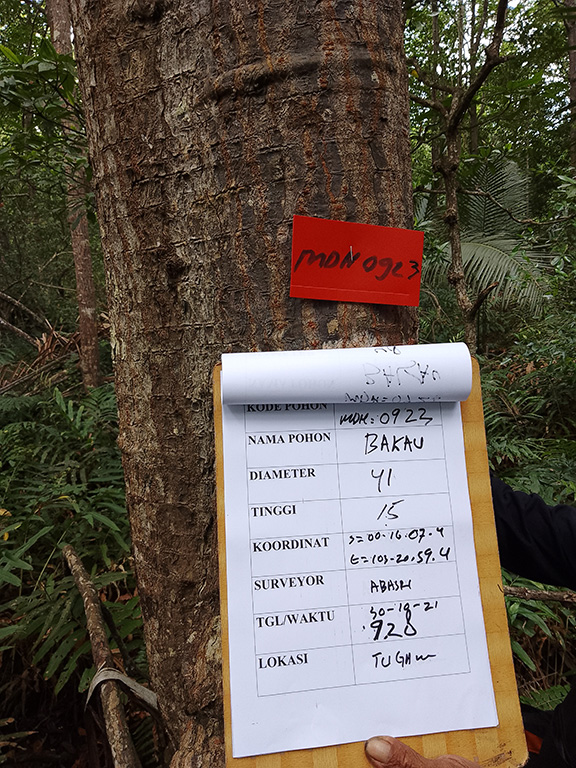 MDN 0923
KODE POHON MDN=0923
NAMA POHON BAKAU
DIAMETER 41
TINGGI 15
KOORDINAT S=00.16.07.4
E=103-20.59.4
SURVEYOR
TGL/WAKTU 30-10-21
928
LOKASI